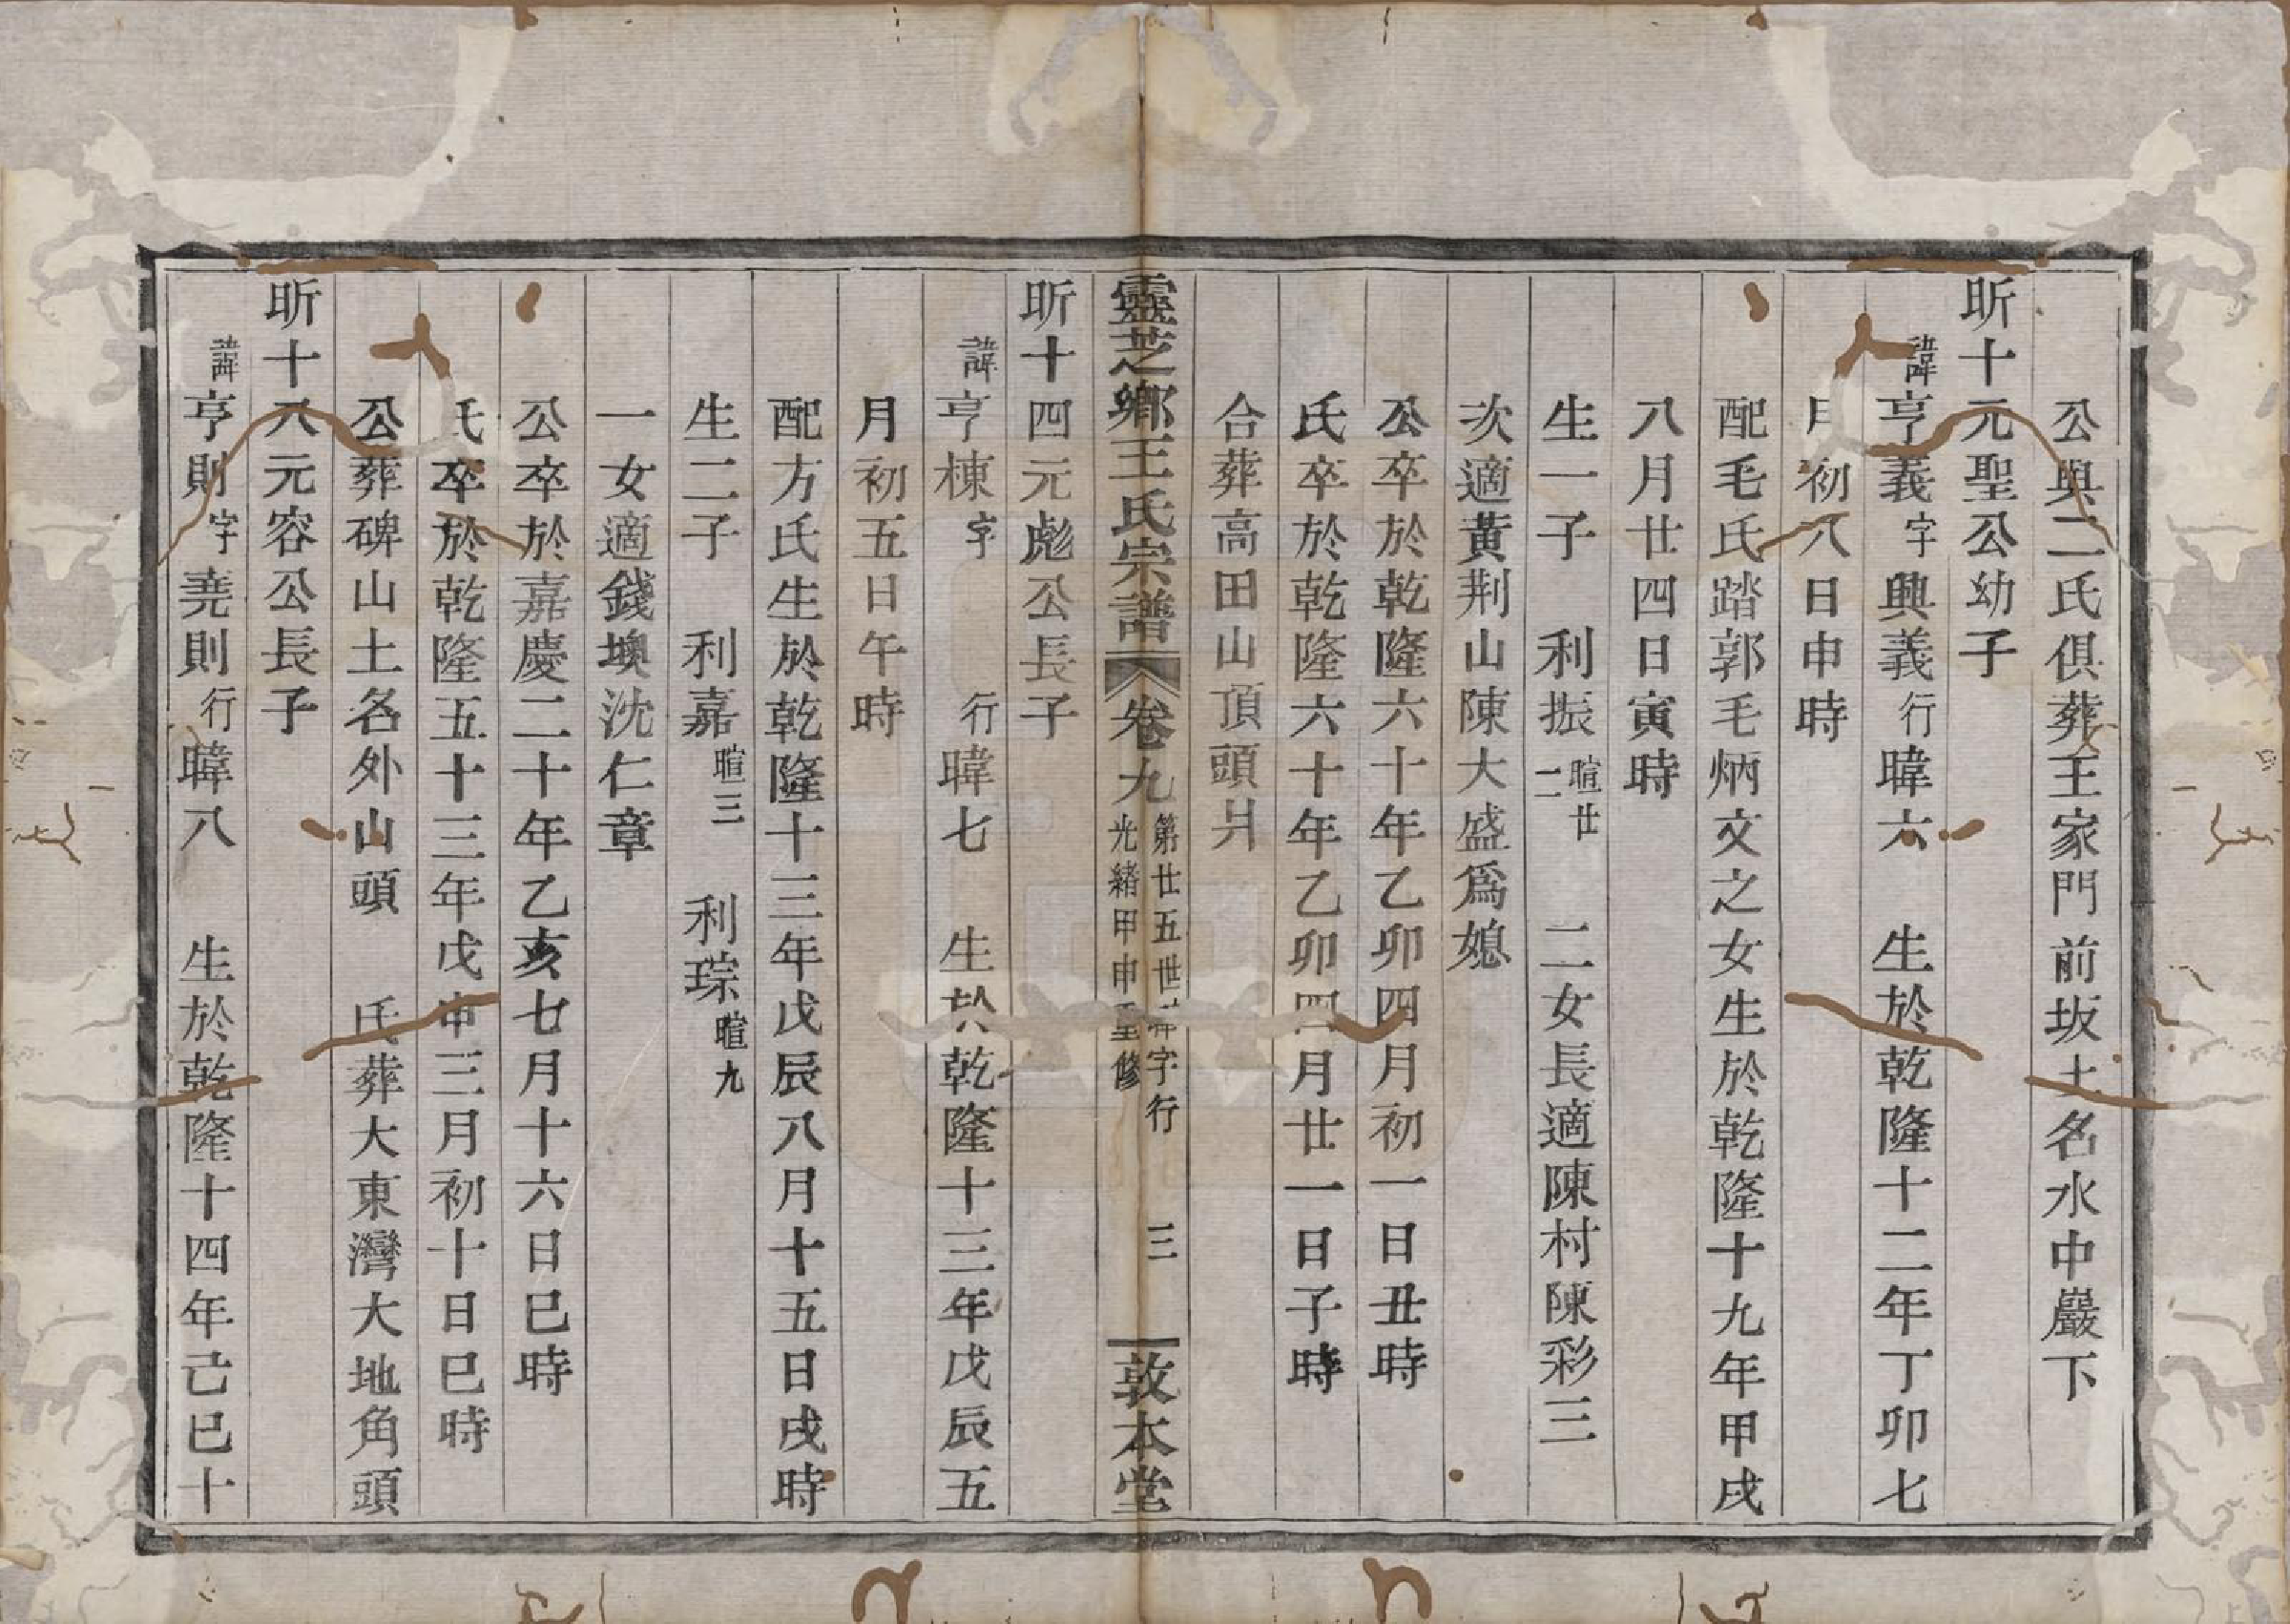 公與二氏俱葬王家門前坂土名水中巖下
昕十元聖公幼子
諱亨義字興義行暐六　生於乾隆十二年丁卯七
月初八日申時
配毛氏踏郭毛炳文之女生於乾隆十九年甲戌
八月廿四日寅時
生一子　利振暄廿二　二女長適陳村陳彩三
次適黃荆山陳大盛爲媳
公卒於乾隆六十年乙卯四月初一日丑時
氏卒於乾隆六十年乙卯四月廿一日子時
合葬高田山頂頭爿
靈芝鄉王氏宗譜　卷九　第廿五世暐字行　光緒甲申重修　三　敦本堂
昕十四元彪公長子
諱亨棟字　行暐七　生於乾隆十三年戊辰五
月初五日午時
配方氏生於乾隆十三年戊辰八月十五日戌時
生二子　利嘉暄三　利琮暄九
一女適錢墺沈仁章
公卒於嘉慶二十年乙亥七月十六日巳時
氏卒於乾隆五十三年戊申三月初十日巳時
公葬碑山土名外山頭　氏葬大東灣大地角頭
昕十八元容公長子
諱亨則字堯則行暐八　生於乾隆十四年己巳十